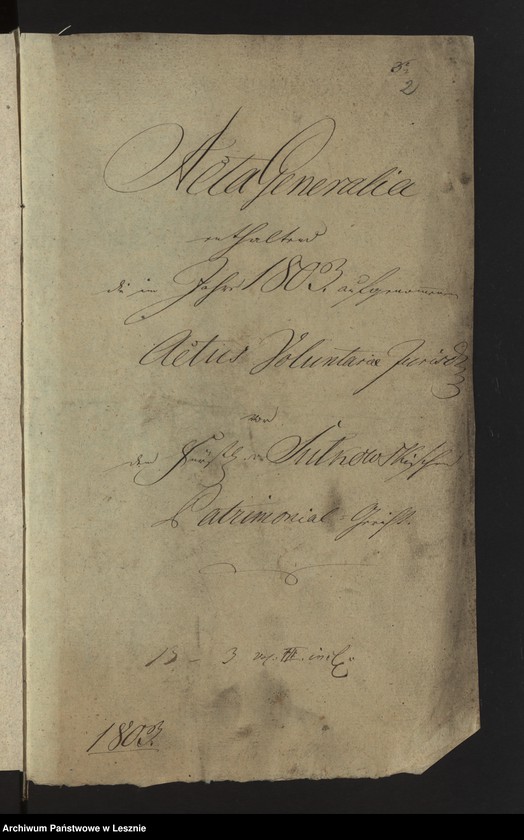 2
Acta Generalia
enthaltend
die im Jahre 1803. aufgenommenen
Actus Voluntariae Jurisd
von
dem Fürstl. v. Sulkowskischen
Patrimonial-Gericht.
1803.
Archiwum Państwowe w Lesznie